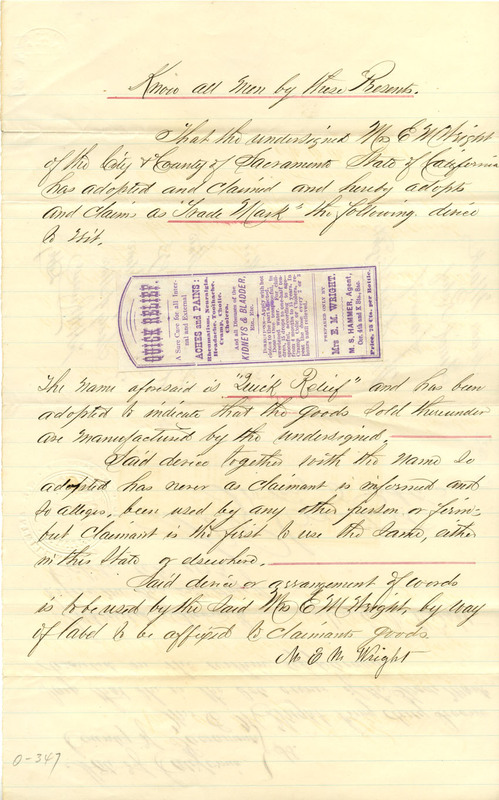 Know all men by these Presents.
That the undersigned Mrs E M Wright
of the City & County of Sacramento State of California
has adopted and claimed and hereby adopts
and claims as "Trade Mark" the following device
to wit.
QUICK RELIEF.
A Sure Cure for all Inter-
nal and External
ACHES and PAINS:
Rheumatism, Neuralgia,
Headache, Toothache,
Cramp, Cholic,
Cholera,
And all Diseases of the
KIDNEYS & BLADDER,
Etc., Etc.
PREPARED ONLY BY
Mrs E. M. WRIGHT.
M. S. HAMMER, Agent,
Cor. 4th and K Sts., Sac.
Price, 75 Cts. per Bottle.
The name aforesaid is "Quick Relief" and has been
adopted to indicate that the goods sold thereunder
are manufactured by the undersigned.
Said device together with the name so
adopted has never as claimant is informed and
so alleges, been used by any other person or firm-
but claimant is the first to use the same, either
in this State or elsewhere.
Said device or arrangement of words
is to be used by the said Mrs E M Wright, by way
of label to be affixed to claimants goods
Mrs E M Wright
0-347